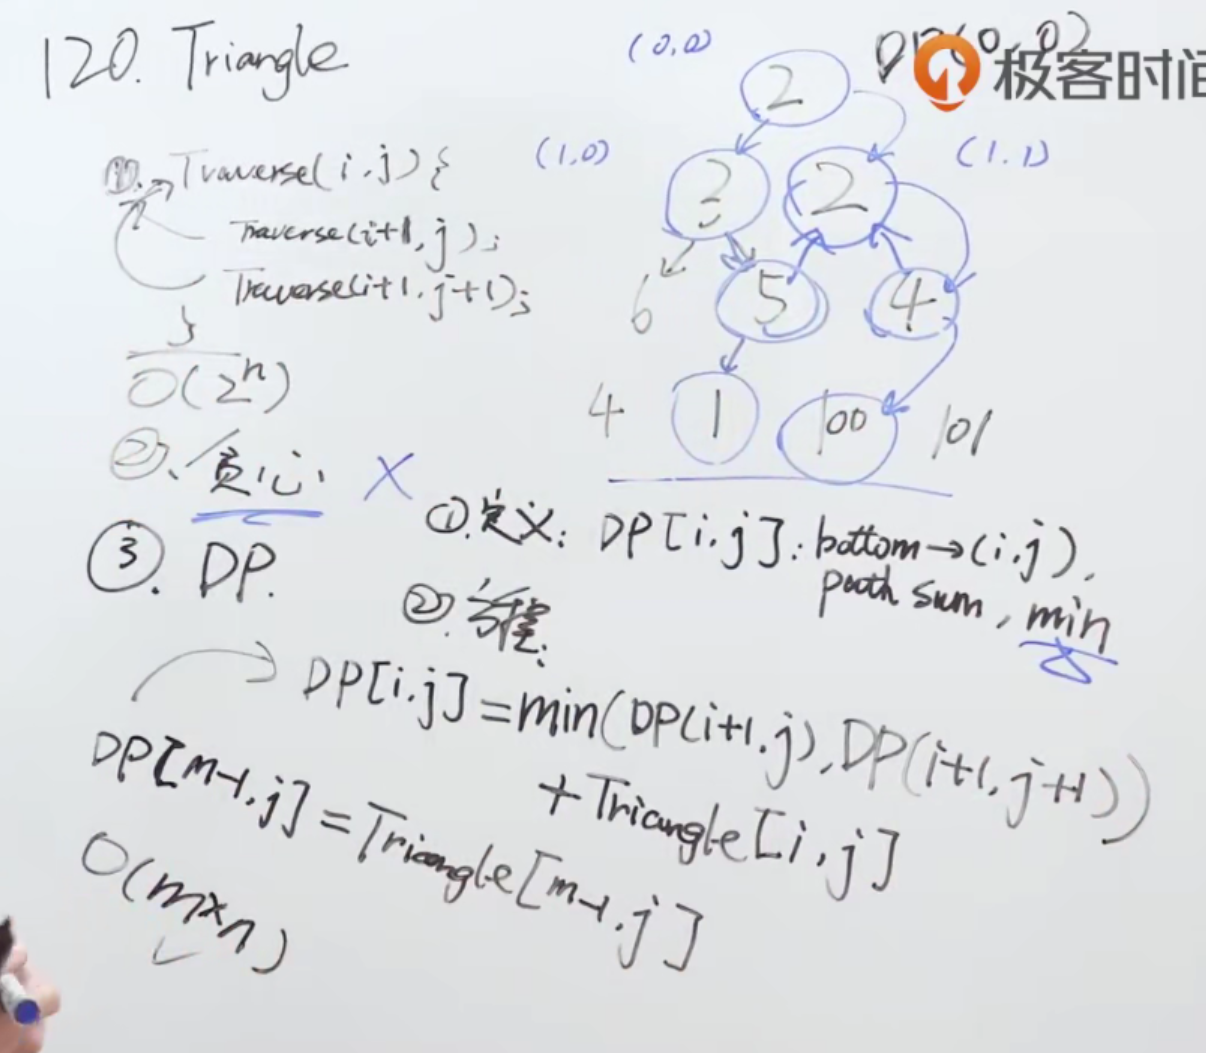 120. Triangle
(0,0)
DP(0,0)
极客时间
2
(1,0)
(1,1)
3 2
6 5 4
4 1 100 101
①. Traverse(i,j){
Traverse(i+1,j);
Traverse(i+1,j+1);
}
O(2ⁿ)
②、贪心 X
③. DP.
①.定义: DP[i,j]: bottom→(i,j),
path sum, min
②.方程:
DP[i,j]=min(DP(i+1,j),DP(i+1,j+1))
+Triangle[i,j]
DP[m-1,j]=Triangle[m-1,j]
O(m×n)